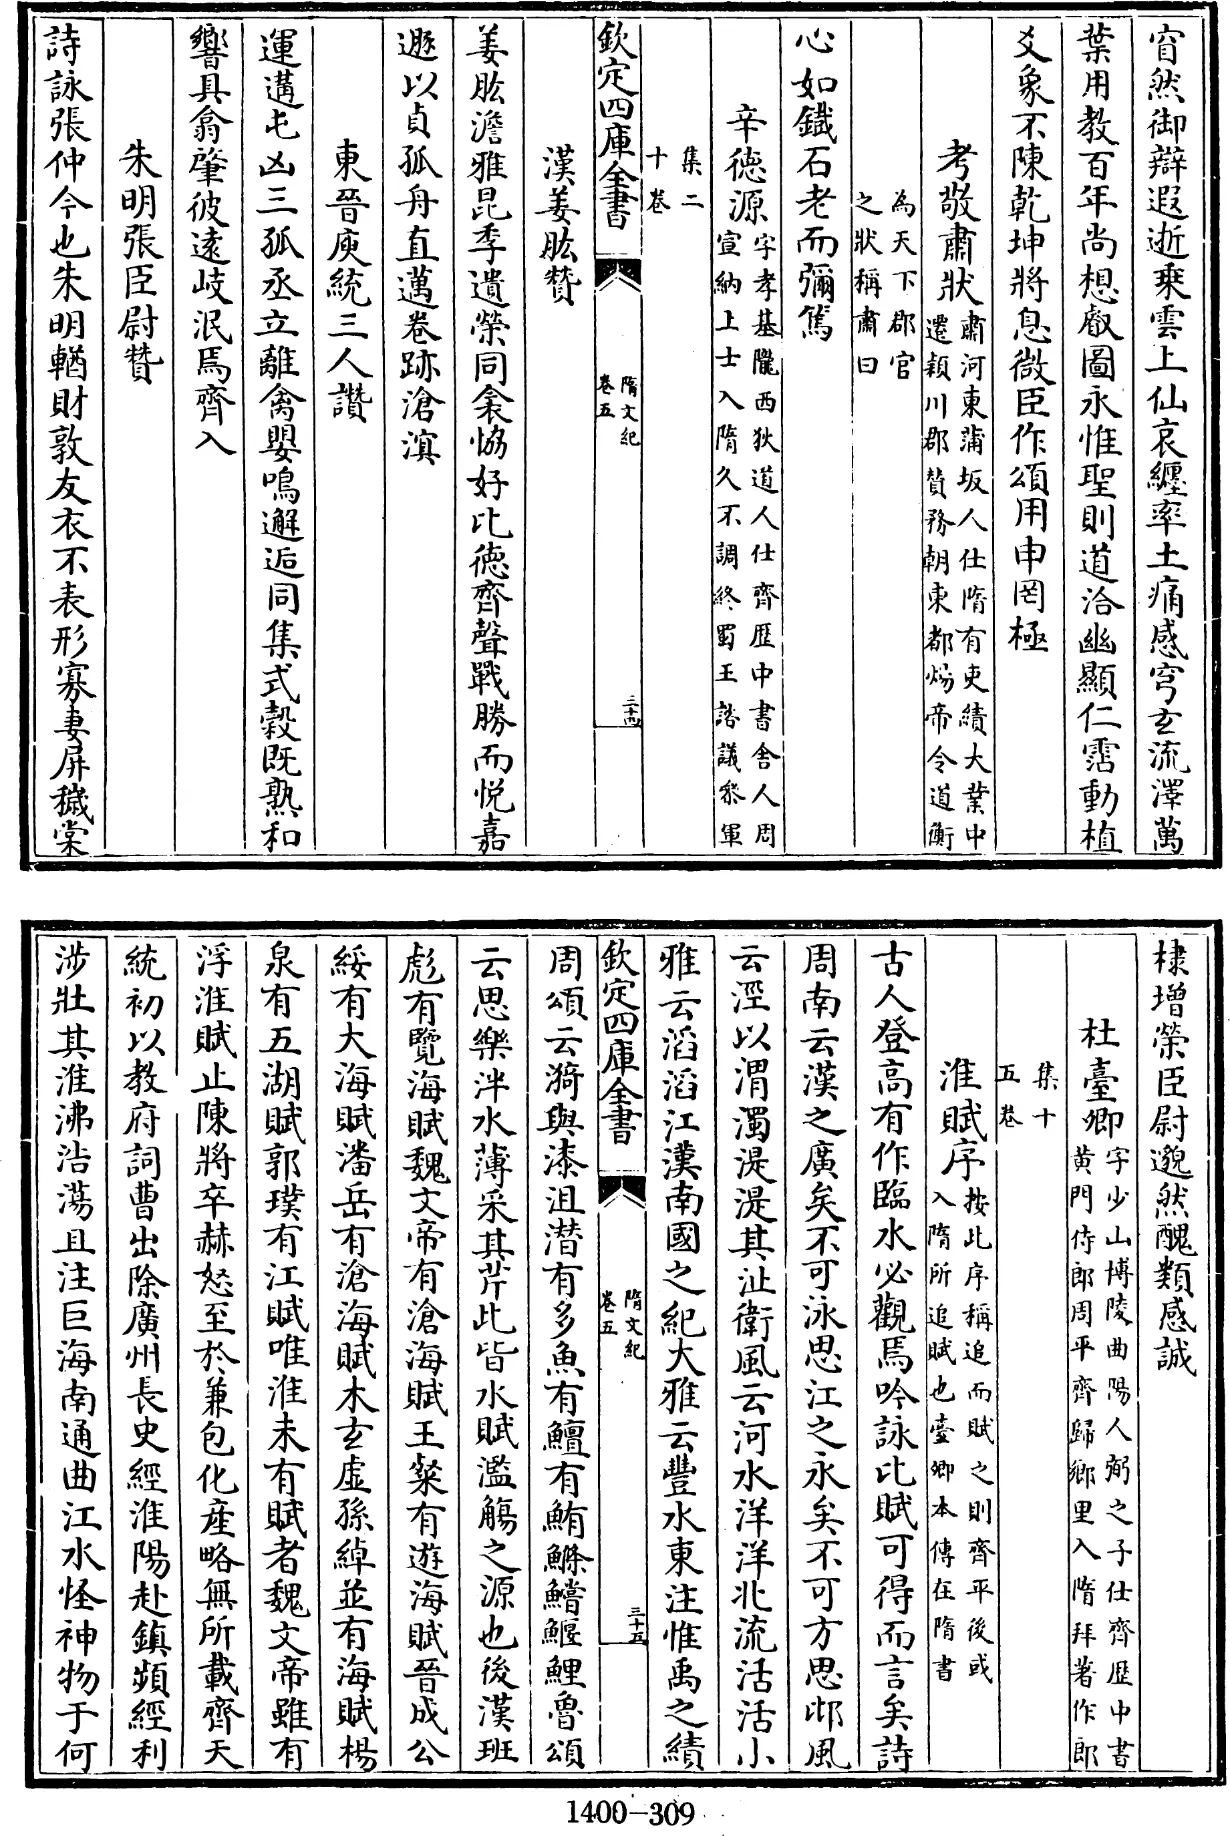 窅然御辯遐逝乗雲上仙哀纒率土痛感穹玄流澤萬
葉用教百年尚想叡圖永惟聖則道洽幽顯仁霑動植
爻象不陳乾坤將息微臣作頌用申罔極
考敬肅狀肅河東蒲坂人仕隋有吏績大業中
遷潁川郡贊務朝東都煬帝令道衡
為天下郡官
之狀稱肅曰
心如鐵石老而彌篤
辛德源字孝基隴西狄道人仕齊歴中書舍人周
宣納上士入隋久不調終蜀王諮議叅軍
集二
十卷
欽定四庫全書
隋文紀
卷五
三十四
漢姜肱贊
姜肱澹雅昆季遺榮同衾恊好比徳齊聲戰勝而悦嘉
遯以貞孤舟直邁卷跡滄溟
東晉庾統三人讚
運遘屯凶三孤丞立離禽嬰鳴邂逅同集式穀既熟和
響具翕肇彼逺岐泯焉齊入
朱明張臣尉贊
詩詠張仲今也朱明輶財敦友衣不表形寡妻屏穢棠
棣增榮臣尉邈然醜類感誠
杜臺卿字少山博陵曲陽人弼之子仕齊歴中書
黄門侍郎周平齊歸鄉里入隋拜著作郎
集十
五卷
淮賦序按此序稱追而賦之則齊平後或
入隋所追賦也臺卿本傳在隋書
古人登高有作臨水必觀焉吟詠比賦可得而言矣詩
周南云漢之廣矣不可泳思江之永矣不可方思邶風
云涇以渭濁湜湜其沚衛風云河水洋洋北流活活小
雅云滔滔江漢南國之紀大雅云豐水東注惟禹之績
欽定四庫全書
隋文紀
卷五
三十五
周頌云猗與漆沮潜有多魚有鱣有鮪鰷鱨鰋鯉魯頌
云思樂泮水薄采其芹此皆水賦濫觴之源也後漢班
彪有覽海賦魏文帝有滄海賦王粲有遊海賦晉成公
綏有大海賦潘岳有滄海賦木玄虚孫綽並有海賦楊
泉有五湖賦郭璞有江賦唯淮未有賦者魏文帝雖有
浮淮賦止陳將卒赫怒至於兼包化産略無所載齊天
統初以教府詞曹出除廣州長史經淮陽赴鎮頻經利
涉壯其淮沸浩蕩且注巨海南通曲江水怪神物于何
1400-309